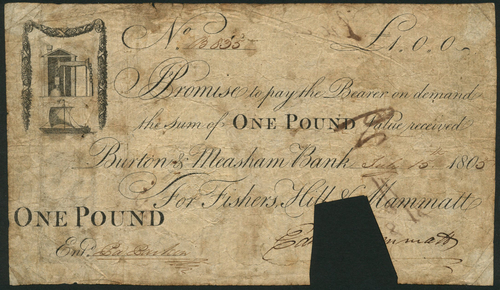 No. £1.0.0
I Promise to pay the Bearer on demand
the Sum of ONE POUND Value received
Burton & Measham Bank July 15 1805
For Fishers, Hill & Hammatt
ONE POUND
Entd.